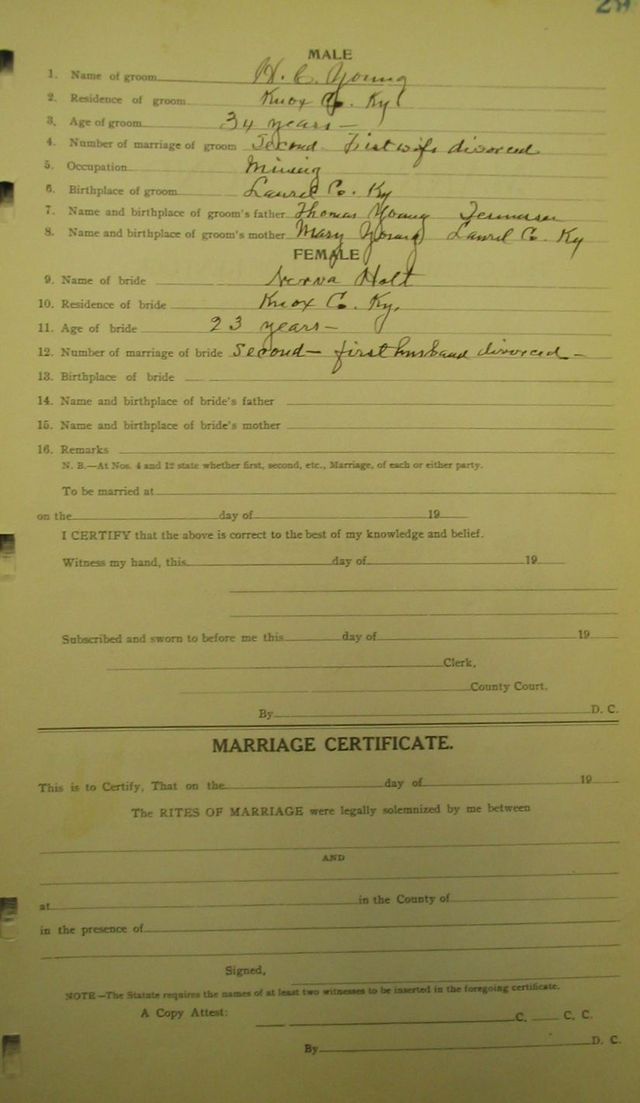 MALE
1. Name of groom H. C. Young
2. Residence of groom Knox Co. Ky.
3. Age of groom 34 years —
4. Number of marriage of groom Second First wife divorced
5. Occupation Mining
6. Birthplace of groom Laurel Co. Ky
7. Name and birthplace of groom's father Thomas Young Tennessee
8. Name and birthplace of groom's mother Mary Young Laurel Co. Ky
FEMALE
9. Name of bride Holt
10. Residence of bride Knox Co. Ky.
11. Age of bride 23 years —
12. Number of marriage of bride Second — first husband divorced —
13. Birthplace of bride
14. Name and birthplace of bride's father
15. Name and birthplace of bride's mother
16. Remarks
N. B.—At Nos. 4 and 12 state whether first, second, etc., Marriage, of each or either party.
To be married at
on the day of 19
I CERTIFY that the above is correct to the best of my knowledge and belief.
Witness my hand, this day of 19
Subscribed and sworn to before me this day of 19
Clerk,
County Court.
By D. C.
MARRIAGE CERTIFICATE.
This is to Certify, That on the day of 19
The RITES OF MARRIAGE were legally solemnized by me between
AND
at in the County of
in the presence of
Signed,
NOTE—The Statute requires the names of at least two witnesses to be inserted in the foregoing certificate.
A Copy Attest: C. C. C.
By D. C.